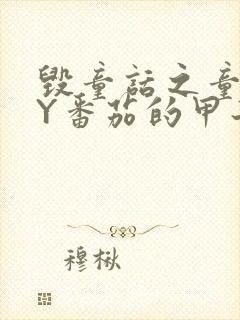 毁童话之童
Y番茄的甲
穆楸